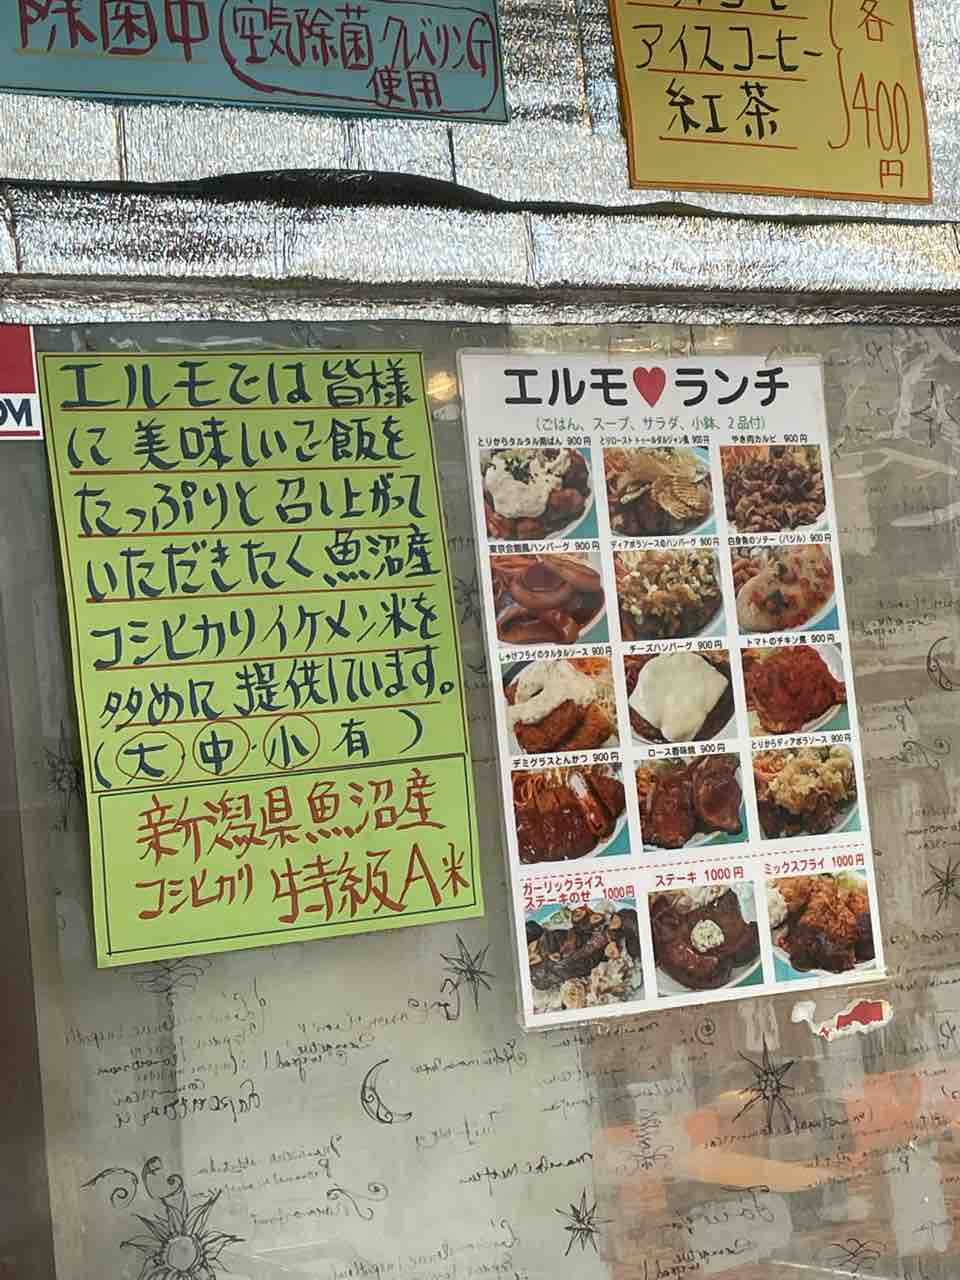 除菌中
空気除菌クレベリンG
使用
アイスコーヒー
紅茶
各
400
円
エルモでは皆様
に美味しいご飯を
たっぷりと召し上がって
いただきたく魚沼産
コシヒカリイケメン米を
多めに提供しています。
(大・中・小有)
新潟県魚沼産
コシヒカリ特級A米
エルモ♥ランチ
(ごはん、スープ、サラダ、小鉢、2品付)
とりからタルタル南ばん 900円
とりロースト トゥールダルジャン風 900円
やき肉カルビ 900円
東京会館風ハンバーグ 900円
ディアボラソースのハンバーグ 900円
白身魚のソテー(バジル) 900円
しゃけフライのタルタルソース 900円
チーズハンバーグ 900円
トマトのチキン煮 900円
デミグラスとんかつ 900円
ロース香味焼 900円
とりからディアボラソース 900円
ガーリックライス
ステーキのせ 1000円
ステーキ 1000円
ミックスフライ 1000円